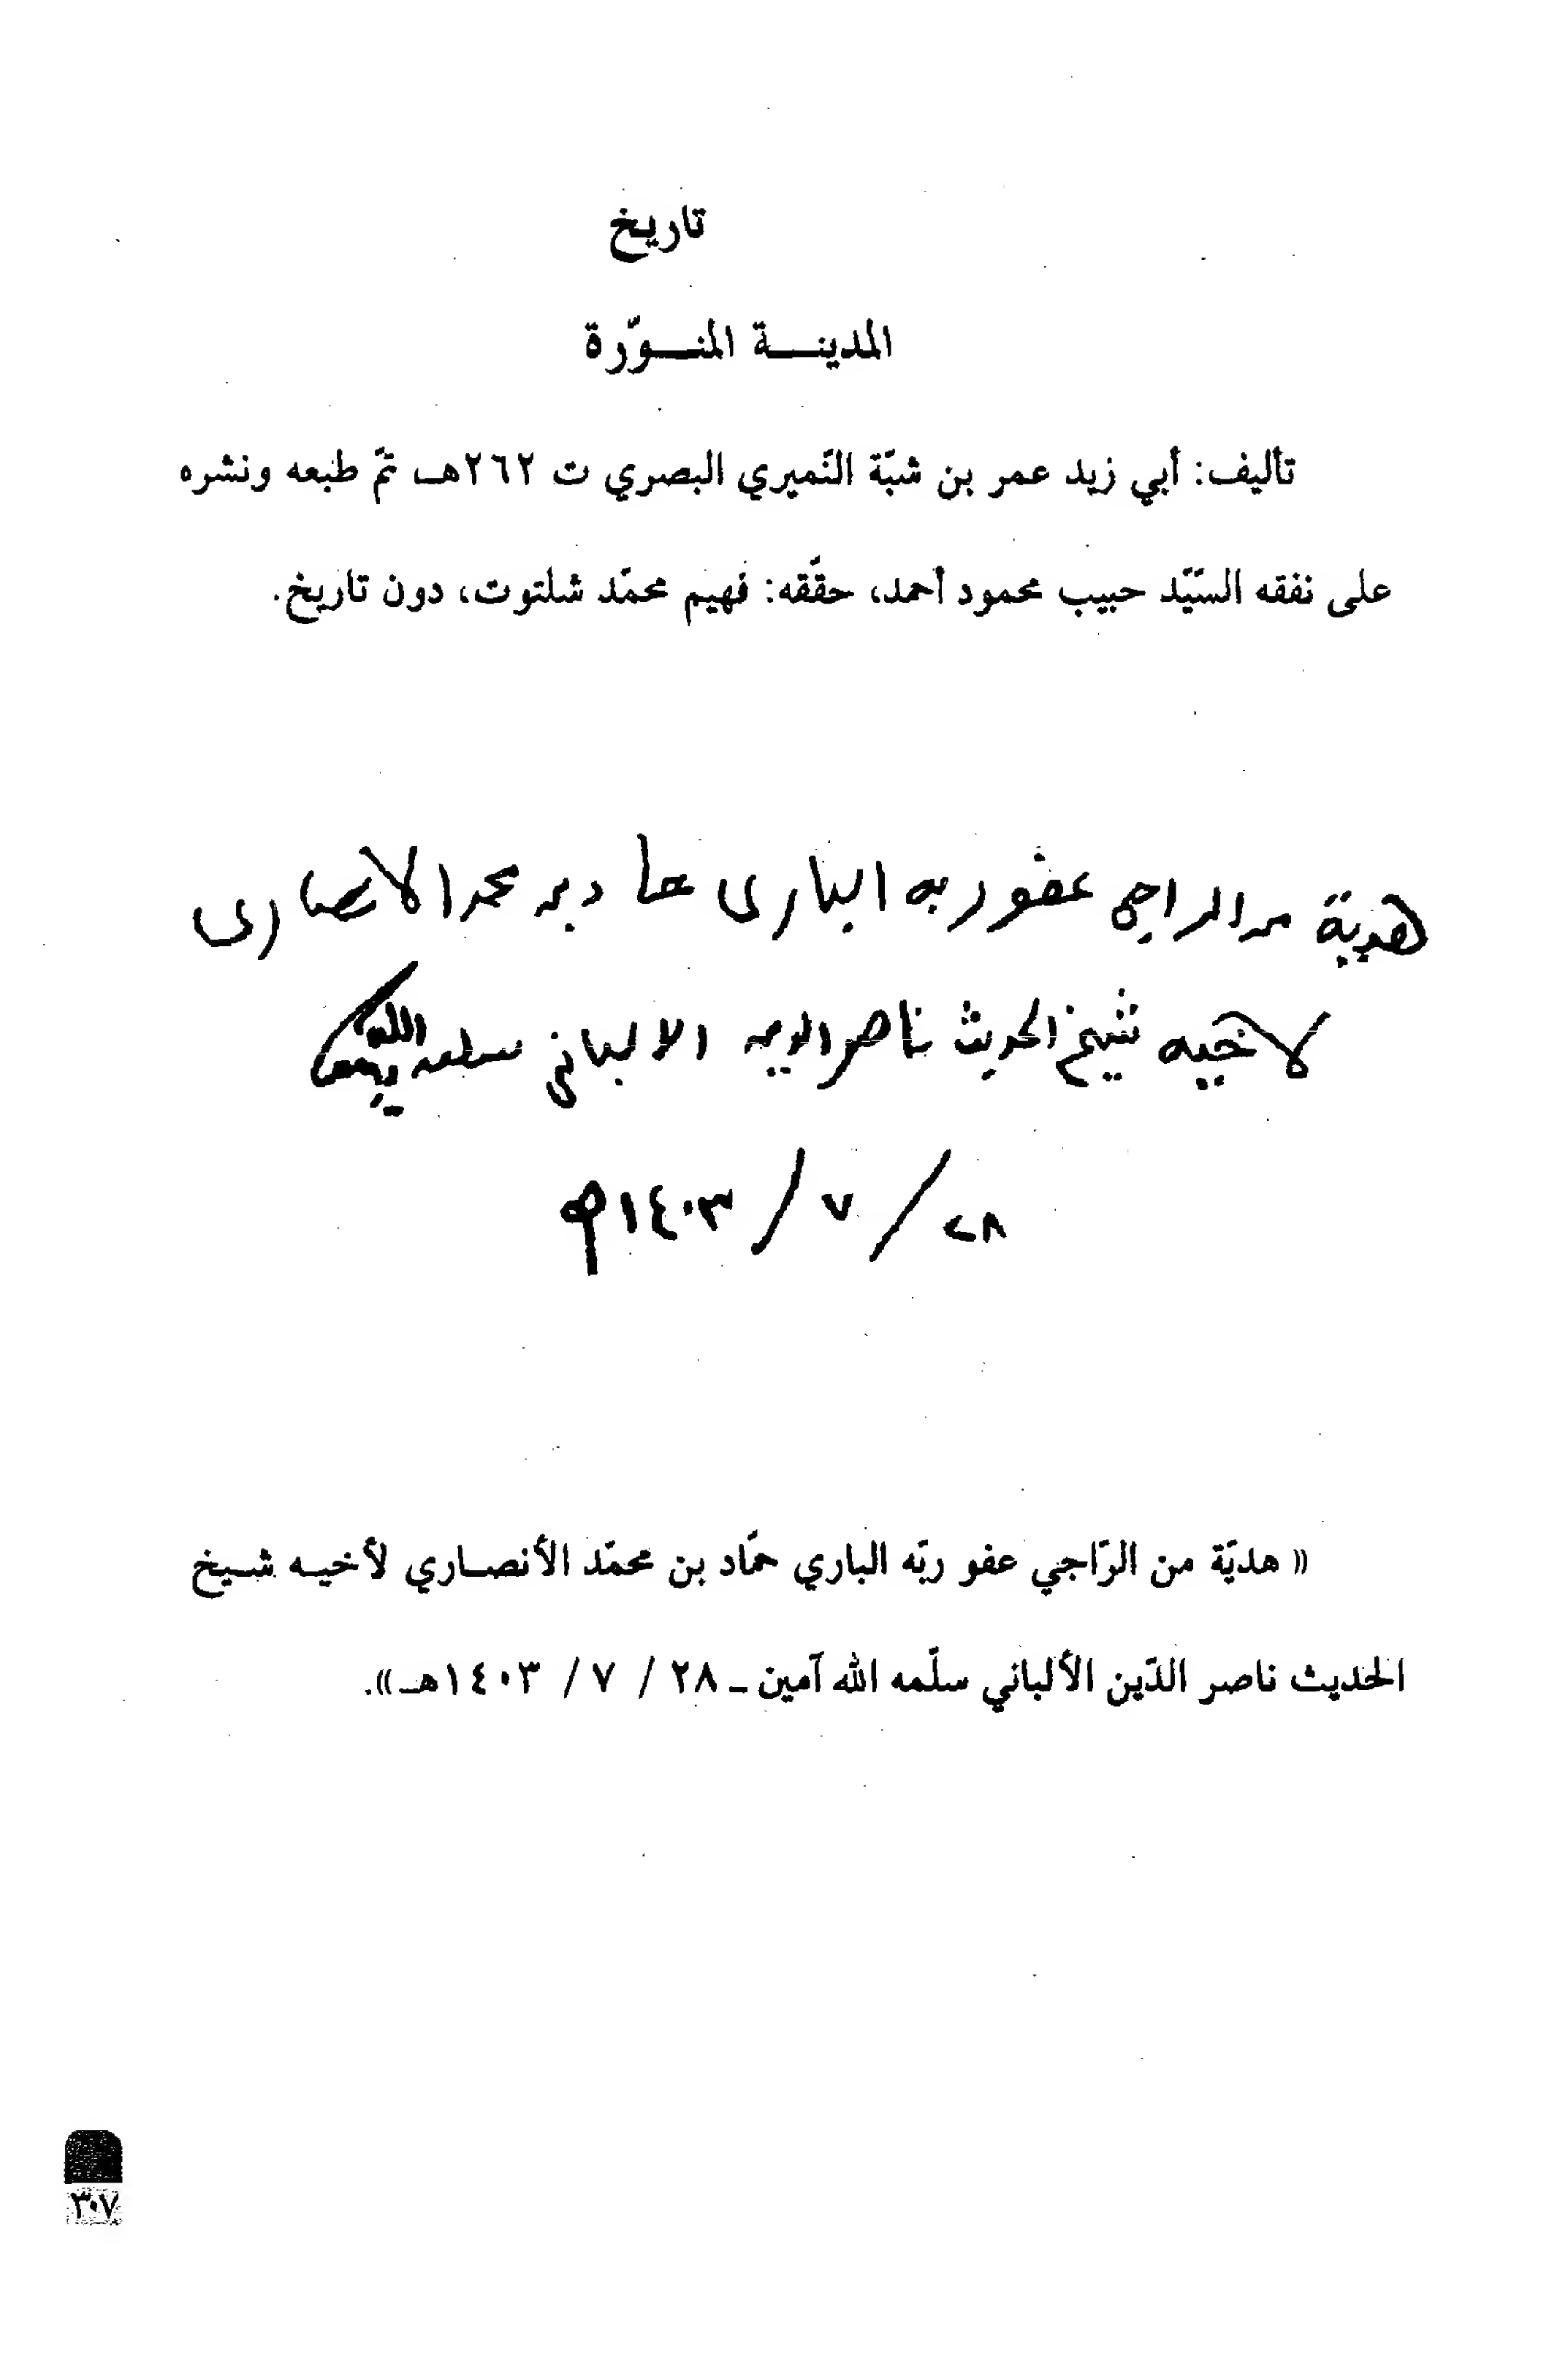 تاريخ
المدينـــة المنـــوّرة
تأليف: أبي زيد عمر بن شبّة النّميري البصري ت ٢٦٢هـ تمّ طبعه ونشره
على نفقه السّيّد حبيب محمود أحمد، حقّقه: فهيم محمّد شلتوت، دون تاريخ.
هدية من الراجى عفو ربه البارى حماد بن محمد الانصارى
لاخيه شيخ الحديث ناصر الدين الالبانى سلمه الله آمين
٢٨ / ٧ / ١٤٠٣هـ
« هديّة من الرّاجي عفو ربّه الباري حمّاد بن محمّد الأنصـاري لأخيـه شـيخ
الحديث ناصر الدّين الألباني سلّمه الله آمين ـ ٢٨ / ٧ / ١٤٠٣هـ».
٣٠٧